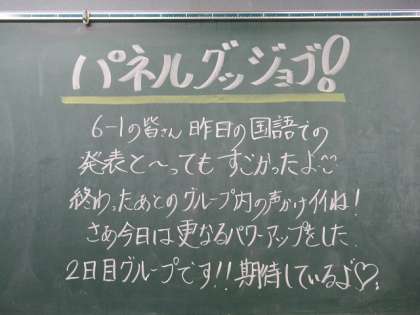 パネルグッジョブ!
6-1の皆さん 昨日の国語での
発表と~ってもすごかったよ
終わったあとのグループ内の声かけイイね!
さあ今日は更なるパワーアップをした
2日目グループです!!期待しているよ♡